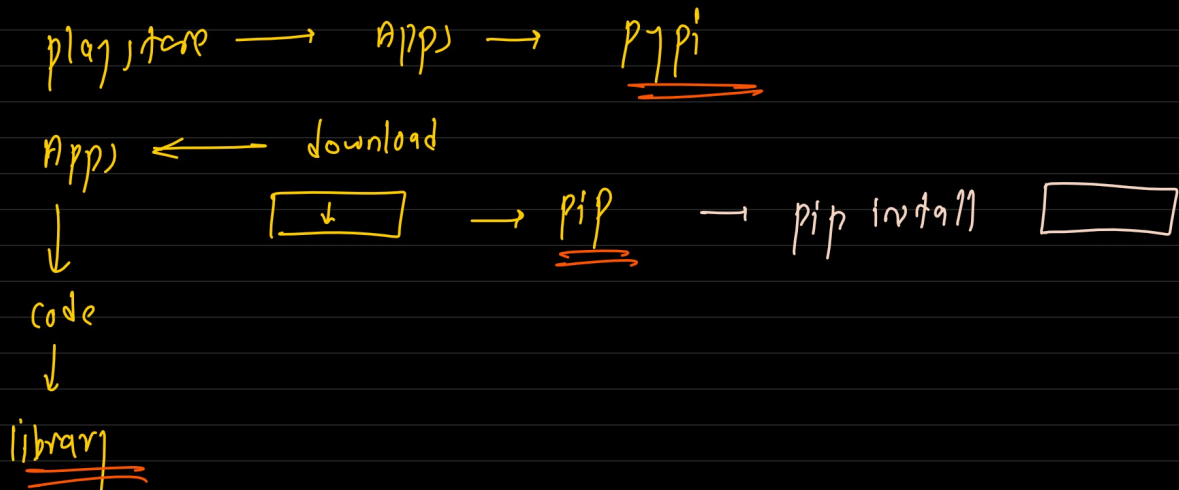 playstore → Apps → pypi
Apps ← download
↓ → pip → pip install
code
library